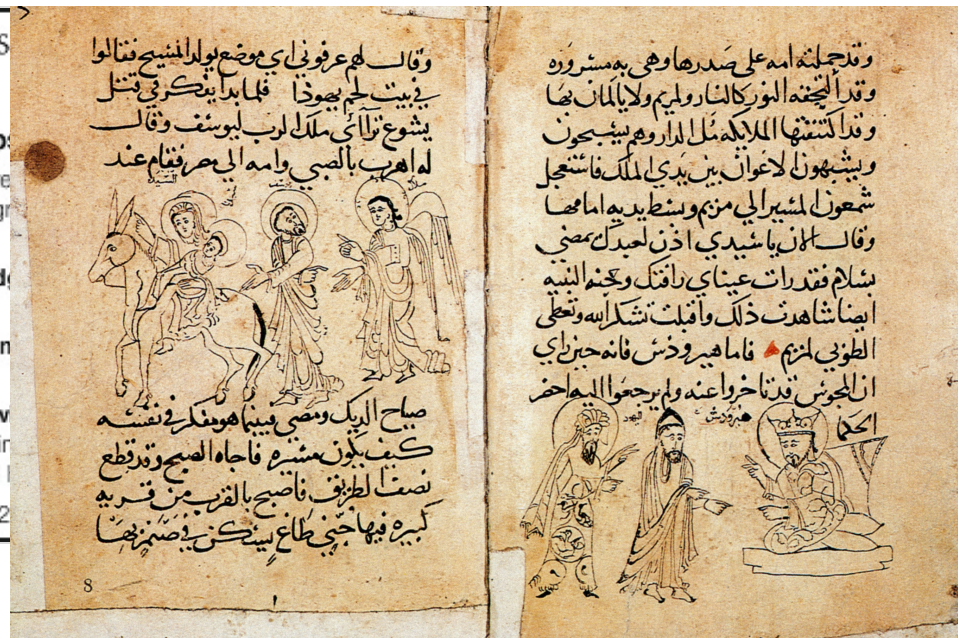 وقد حملته امه على صدرها وهى به مسروره
وقد التحفه النور كالنار ولمريم ولا يالمان بها
وقد اكتنفتها الملايكه مثل الدار وهم يسبحون
ويشبهون الاعوان بين يدي الملك فاستعجل
شمعون المسير الي مريم وبسط يديه امامها
وقال الان ياسيدي اذن لعبدك يمضي
بسلام فقد رات عيناي رافتك وحنه النبيه
ايضا شاهدت ذلك واقبلت تشكر الله وتعطى
الطوبي لمريم فاما هيرودس فانه حين راي
ان المجوس قد تاخروا عنه ولم يرجعوا اليه احضر
الحكما
هيرودس
وقال لهم عرفوني اي موضع يولد المسيح فقالوا
في بيت لحم يهوذا فلما بدا يفكر في قتل
يشوع تراآى ملاك الرب ليوسف وقال
له اهرب بالصبي وامه الي مصر فقام عند
السيده
يوسف
ملاك
صياح الديك ومضي فبينما هو مفكر في نفسه
كيف يكون مسيره فاجاه الصبح وقد قطع
نصف الطريق فاصبح بالقرب من قريه
كبيره فيها جني طاغ يسكن في صنم بها
8